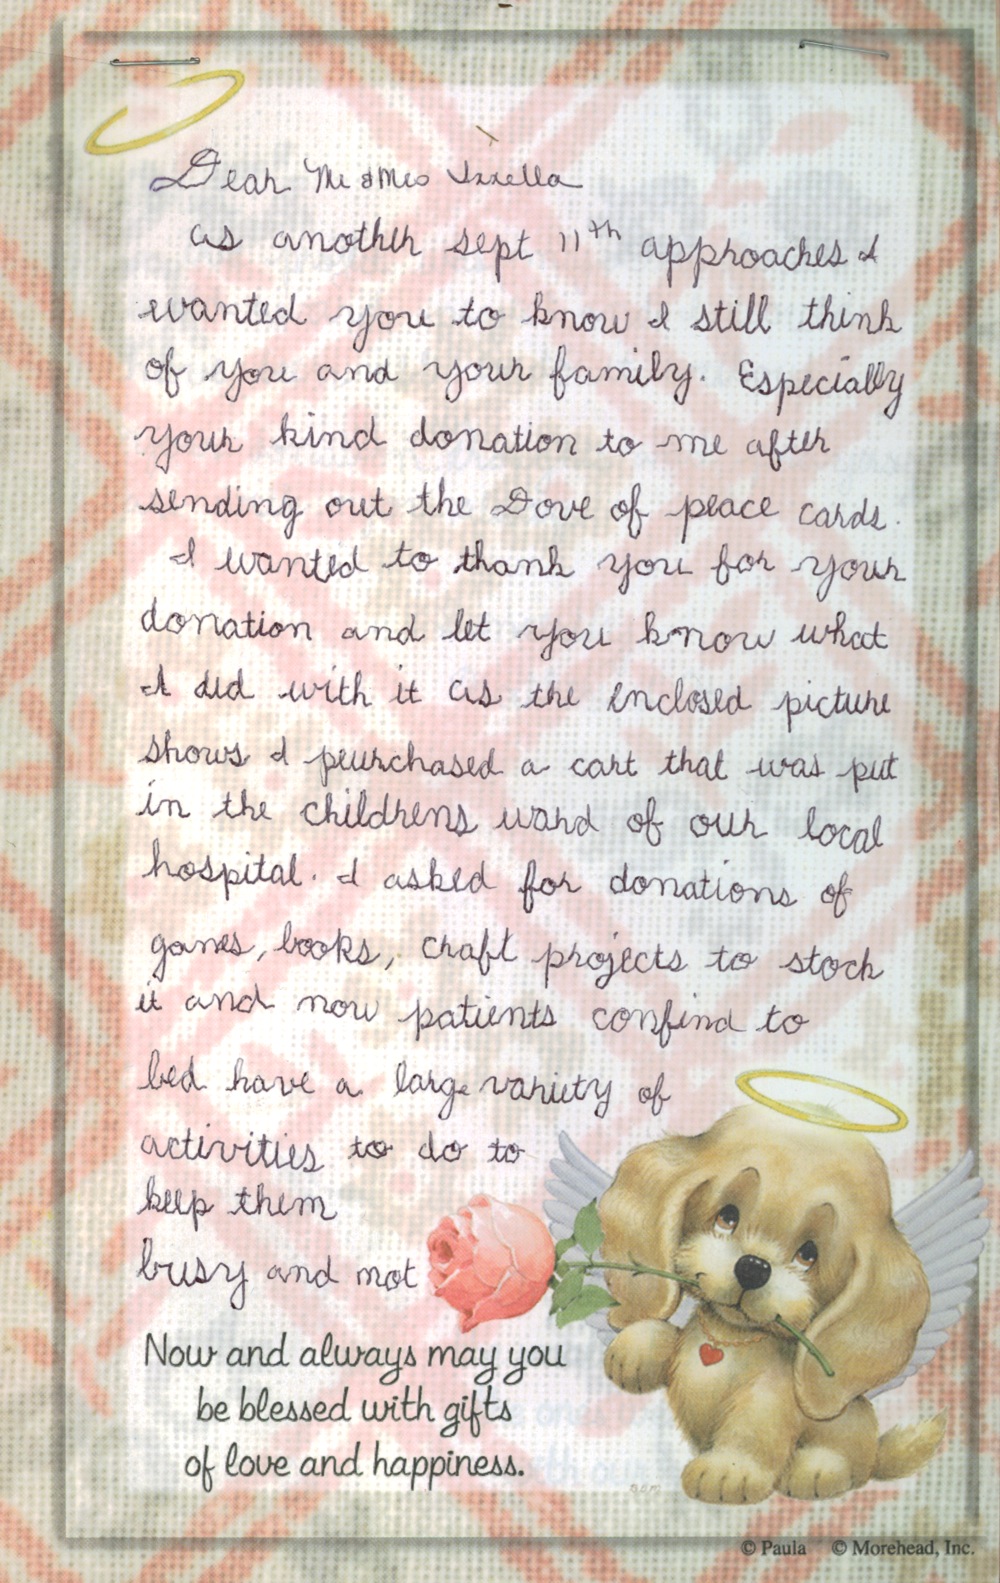 Dear Mr & Mrs Izzella
as another sept 11th approaches I
wanted you to know I still think
of you and your family. Especially
your kind donation to me after
sending out the Dove of peace cards.
I wanted to thank you for your
donation and let you know what
I did with it as the enclosed picture
shows I peurchased a cart that was put
in the childrens ward of our local
hospital. I asked for donations of
games, books, craft projects to stock
it and now patients confind to
bed have a large variety of
activities to do to
keep them
busy and not
Now and always may you
be blessed with gifts
of love and happiness.
© Paula © Morehead, Inc.